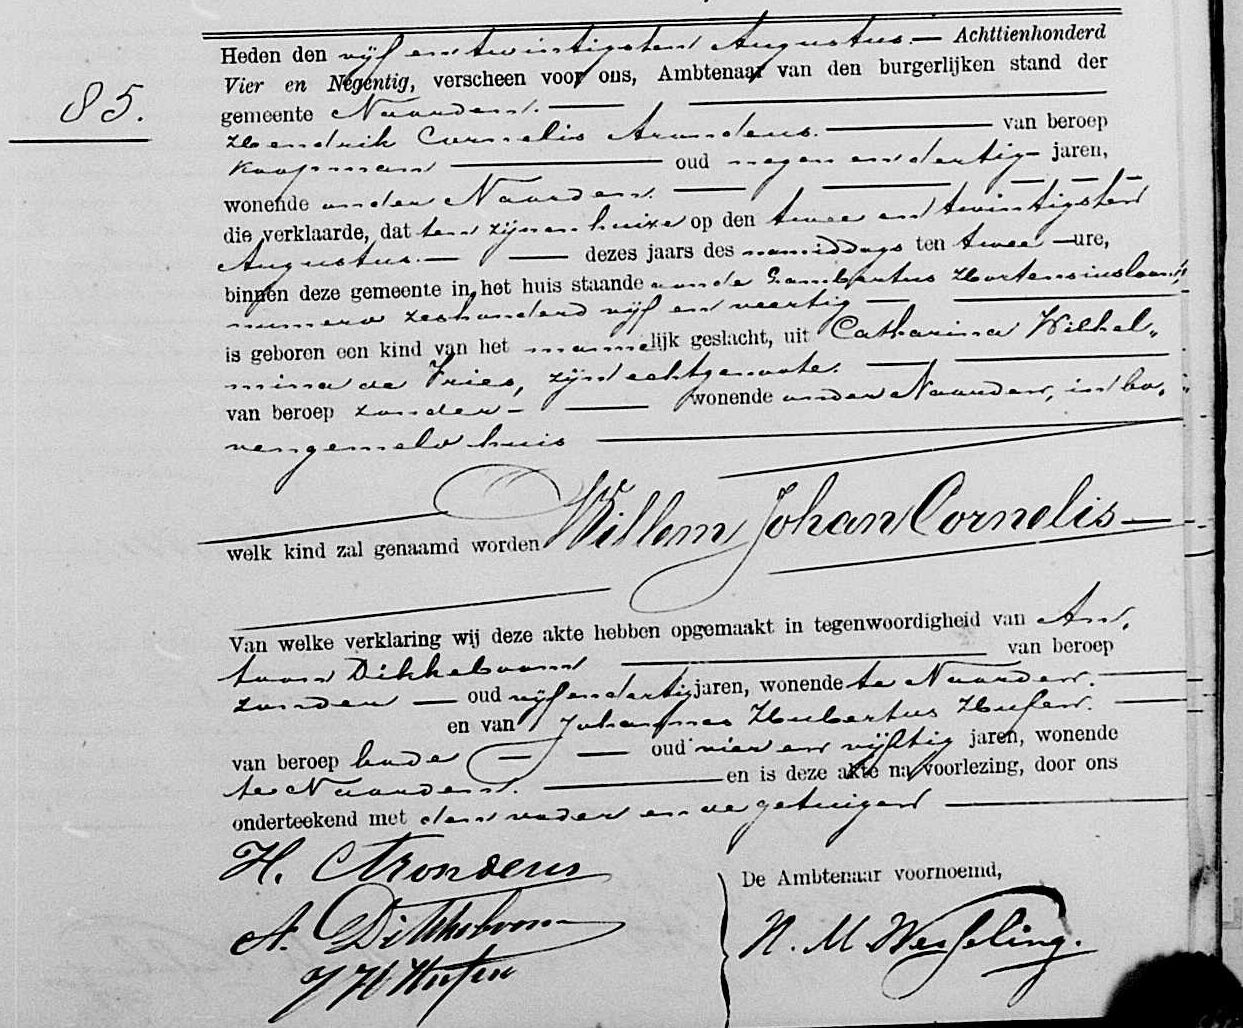 85.
Heden den vijf en twintigsten Augustus. — Achttienhonderd
Vier en Negentig, verscheen voor ons, Ambtenaar van den burgerlijken stand der
gemeente Naarden.
Hendrik Cornelis Arondeus. van beroep
Koopman oud negen en dertig jaren,
wonende onder Naarden.
die verklaarde, dat ten zijnen huize op den twee en twintigsten
Augustus. dezes jaars des namiddags ten twee ure,
binnen deze gemeente in het huis staande aan de Lambertus Hortensiuslaan,
numero zeshonderd vijf en veertig
is geboren een kind van het mannelijk geslacht, uit Catharina Wilhel„
mina de Vries, zijn echtgenoote.
van beroep zonder wonende onder Naarden, in bo„
vengemeld huis
welk kind zal genaamd worden Willem Johan Cornelis
Van welke verklaring wij deze akte hebben opgemaakt in tegenwoordigheid van An„
toon Dikkeboom van beroep
zonder oud vijf en dertig jaren, wonende te Naarden.
en van Johannes Hubertus Husen.
van beroep bode oud vier en vijftig jaren, wonende
te Naarden. en is deze akte na voorlezing, door ons
onderteekend met den vader en de getuigen
H. C Arondeus
A. Dikkeboom
J H Husen
De Ambtenaar voornoemd,
N. M Wesseling.